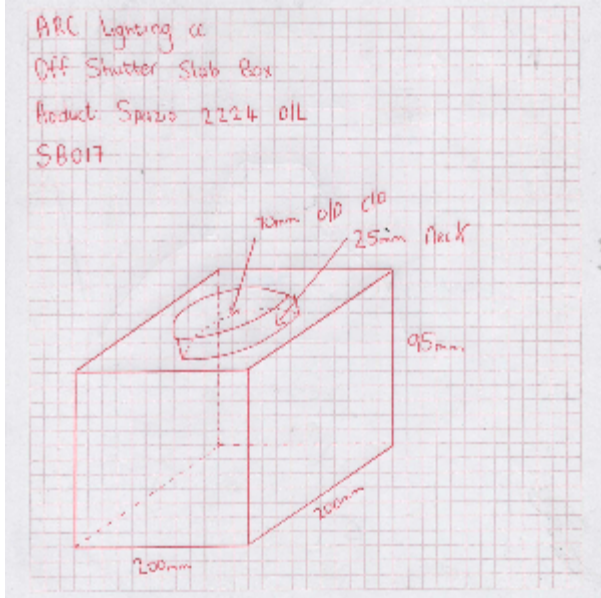 ARC Lighting cc
Off Shutter Slab Box
Product: Spazio 2224 D/L
SB017
70mm O/D C/O
25mm Neck
95mm
200mm
200mm